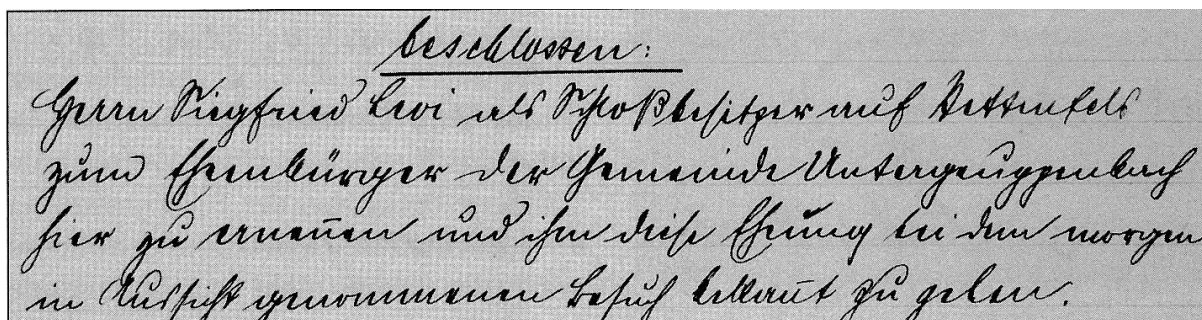 beschlossen:
Herrn Siegfried Levi als Schloßbesitzer auf Dettenfels
zum Ehrenbürger der Gemeinde Untergruppenbach
hier zu ernennen und ihm diese Ehrung bei dem morgen
in Aussicht genommenen Besuch bekannt zu geben.